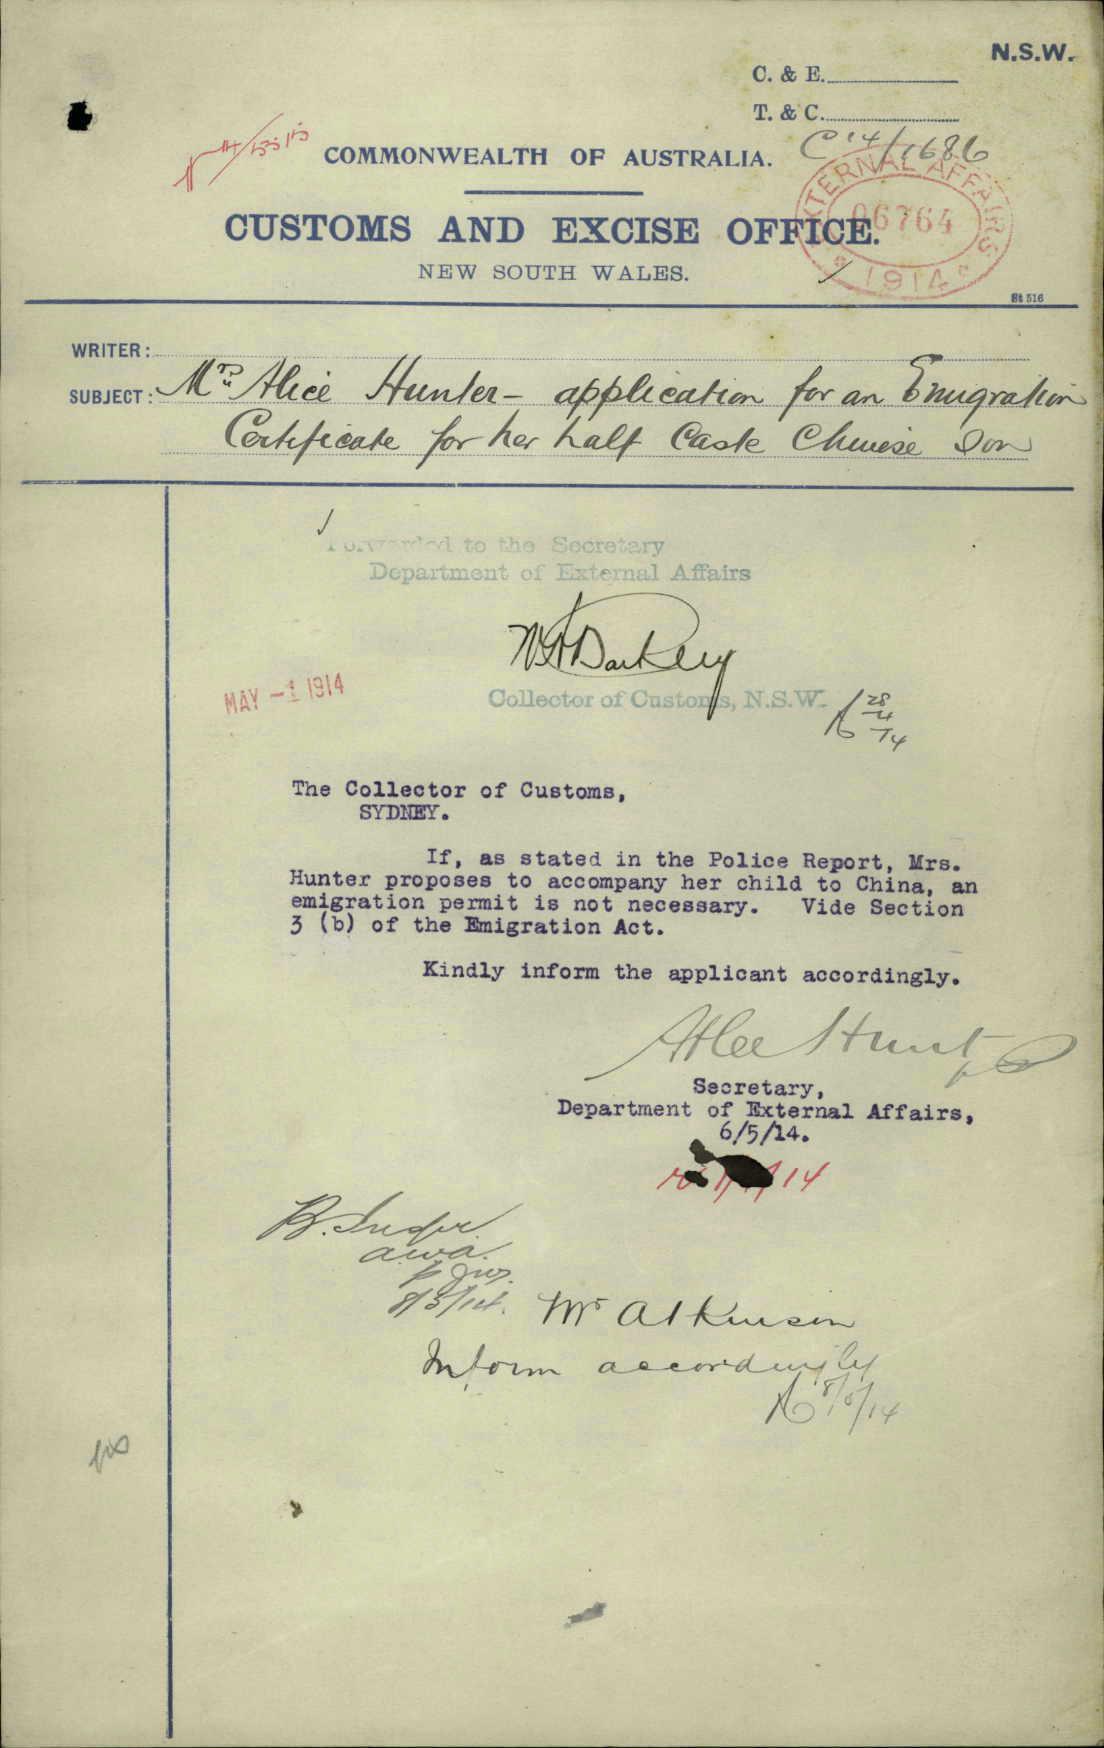 N.S.W.
C. & E.
T. & C.
C14/1686
COMMONWEALTH OF AUSTRALIA.
EXTERNAL AFFAIRS
06764
1914
CUSTOMS AND EXCISE OFFICE.
NEW SOUTH WALES.
St 516
WRITER:
SUBJECT: Mrs Alice Hunter - application for an Emigration
Certificate for her half Caste Chinese Son
Forwarded to the Secretary
Department of External Affairs
Collector of Customs, N.S.W.
MAY -1 1914
28
4
14
The Collector of Customs,
SYDNEY.
If, as stated in the Police Report, Mrs.
Hunter proposes to accompany her child to China, an
emigration permit is not necessary. Vide Section
3 (b) of the Emigration Act.
Kindly inform the applicant accordingly.
Atlee Hunt
Secretary,
Department of External Affairs,
6/5/14.
14
8/5/14.
Mr Atkinson
Inform accordingly
8/5/14